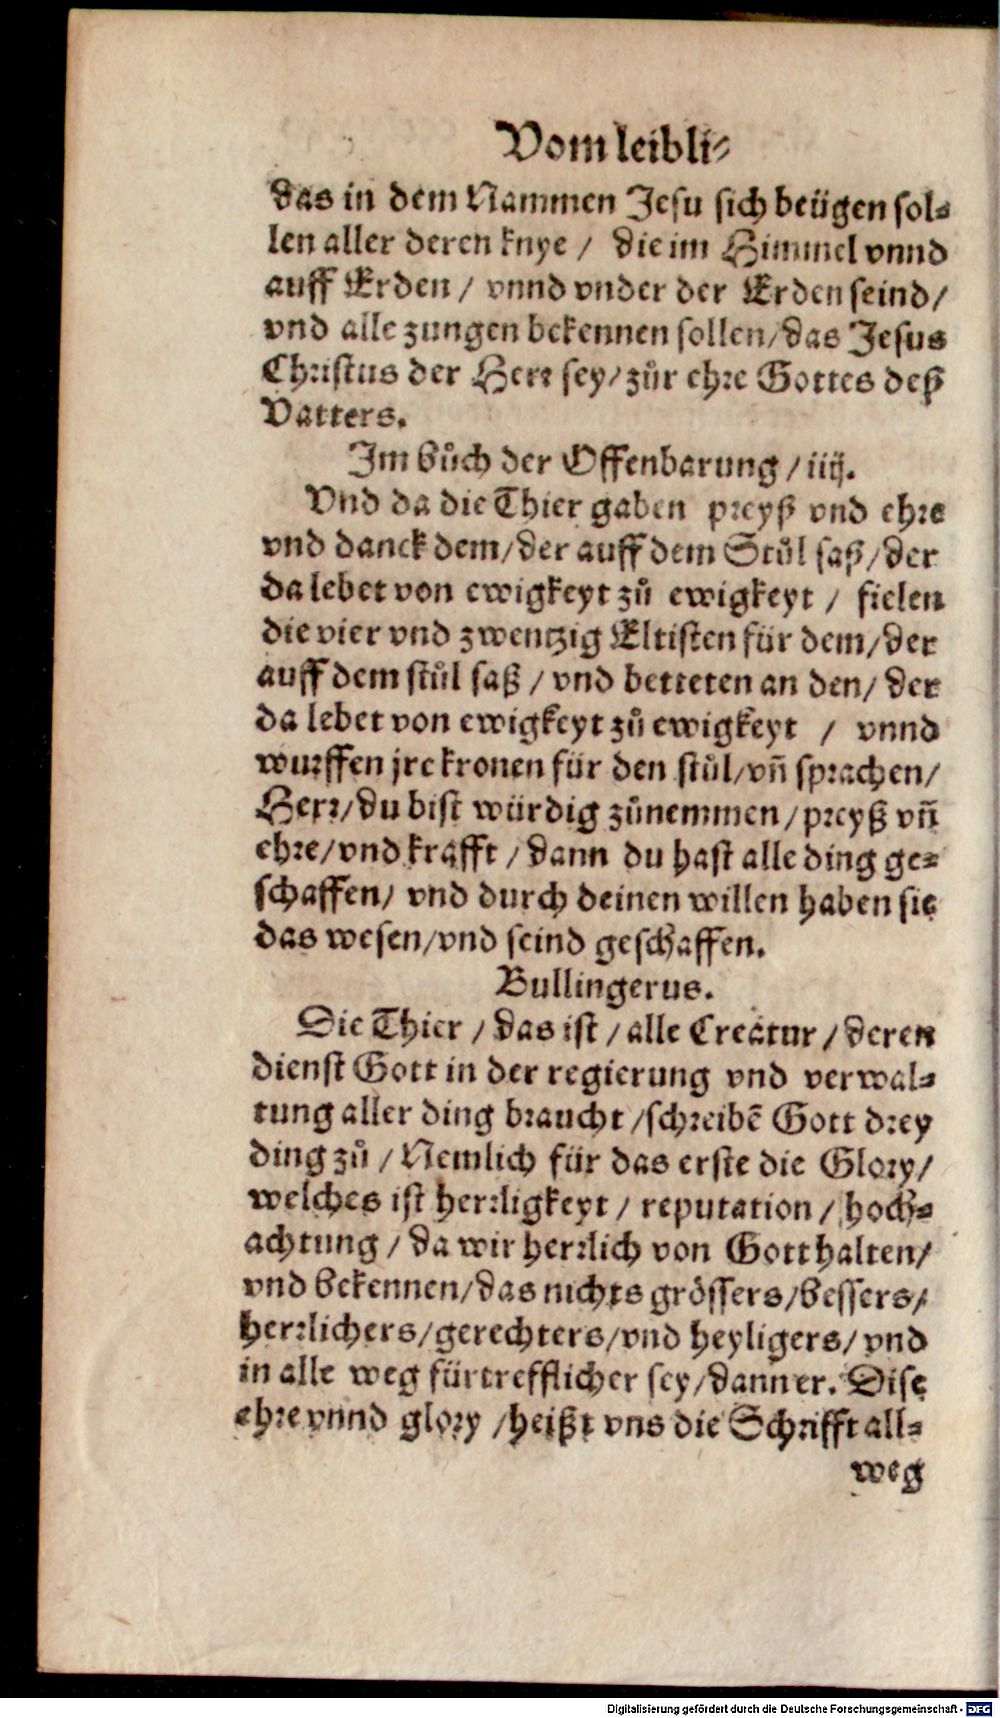 Vom leibli⸗
das in dem Nammen Jesu sich beügen sol⸗
len aller deren knye / die im Himmel vnnd
auff Erden / vnnd vnder der Erden seind /
vnd alle zungen bekennen sollen / das Jesus
Christus der Herr sey / zůr ehre Gottes deß
Vatters.
Im bůch der Offenbarung / iiij.
Vnd da die Thier gaben preyß vnd ehre
vnd danck dem / der auff dem Stůl saß / der
da lebet von ewigkeyt zů ewigkeyt / fielen
die vier vnd zwentzig Eltisten für dem / der
auff dem stůl saß / vnd betteten an den / der
da lebet von ewigkeyt zů ewigkeyt / vnnd
wurffen jre kronen für den stůl / vñ sprachen /
Herr / du bist würdig zůnemmen / preyß vñ
ehre / vnd krafft / dann du hast alle ding ge⸗
schaffen / vnd durch deinen willen haben sie
das wesen / vnd seind geschaffen.
Bullingerus.
Die Thier / das ist / alle Creatur / deren
dienst Gott in der regierung vnd verwal⸗
tung aller ding braucht / schreibē Gott drey
ding zů / Nemlich für das erste die Glory /
welches ist herrligkeyt / reputation / hoch⸗
achtung / da wir herrlich von Gott halten /
vnd bekennen / das nichts grössers / bessers /
herrlichers / gerechters / vnd heyligers / vnd
in alle weg fürtrefflicher sey / dann er. Dise
ehre vnnd glory / heißt vns die Schrifft all⸗
weg
Digitalisierung gefördert durch die Deutsche Forschungsgemeinschaft - DFG